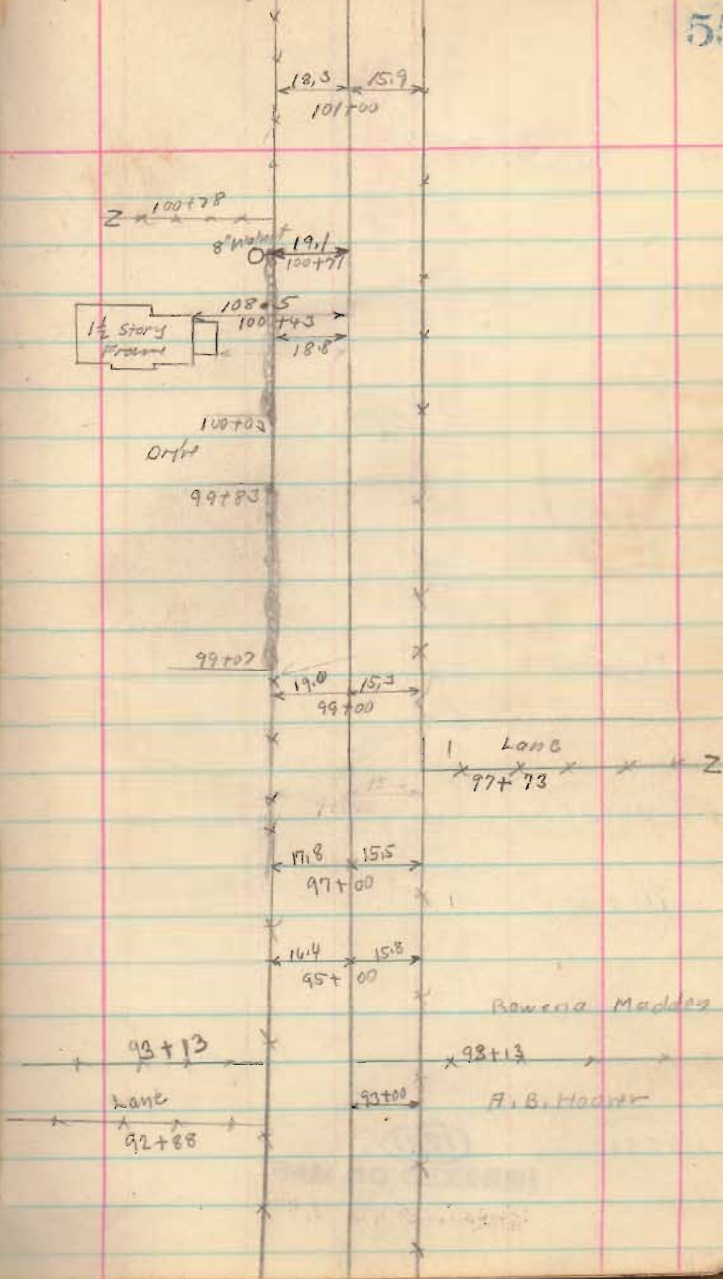 18.3 15.9
101+00
Z 100+78
8" Walnut
19.1
100+71
108.5
100+43
1½ Story
Frame
18.8
100+03
Drive
99+83
99+07
19.0 15.3
99+00
Lane
97+73 Z
17.8 15.5
97+00
16.4 15.8
95+00
Rowena Madden
93+13 93+13
93+00 A.B. Hoover
Lane
92+88